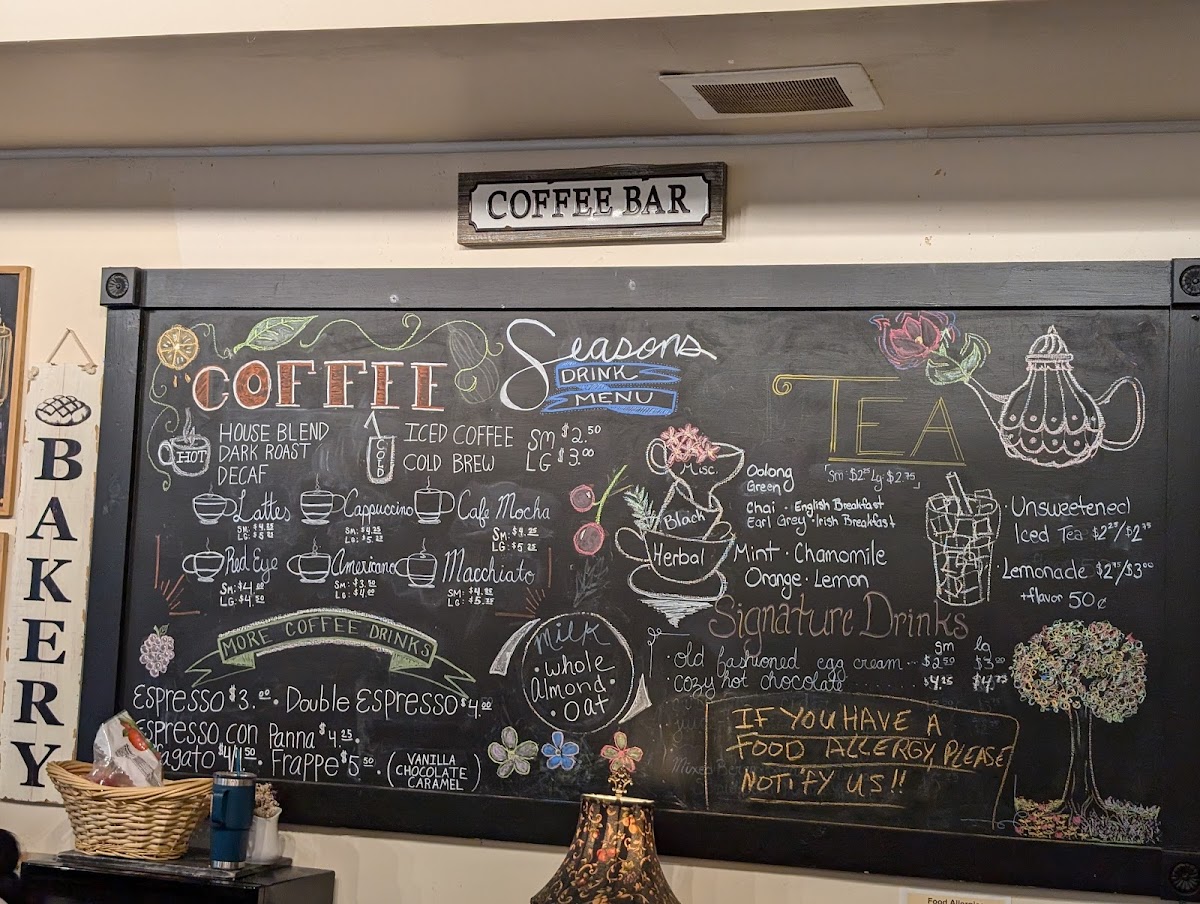 COFFEE BAR
BAKERY
COFFEE
Seasons
DRINK
MENU
TEA
Sm $2.25 Lg $2.75
HOT
HOUSE BLEND
DARK ROAST
DECAF
COLD
ICED COFFEE
COLD BREW
SM $2.50
LG $3.00
Lattes
SM: $4.25
LG: $5.25
Cappuccino
SM: $4.25
LG: $5.25
Cafe Mocha
SM: $4.25
LG: $5.25
Red Eye
SM: $4.00
LG: $4.50
Americano
SM: $3.50
LG: $4.00
Macchiato
SM: $4.25
LG: $5.25
MORE COFFEE DRINKS
Espresso $3.00 · Double Espresso $4.00
Espresso con Panna $4.25 ·
fagato $4.50 · Frappe $5.50 ·
(VANILLA
CHOCOLATE
CARAMEL)
Milk
· Whole
Almond ·
· Oat
Misc.
Oolong
Green
Black
Chai · English Breakfast
Earl Grey · Irish Breakfast
Herbal
Mint · Chamomile
Orange · Lemon
· Unsweetened
Iced Tea $2.25/$2.75
· Lemonade $2.75/$3.00
+flavor 50¢
Signature Drinks
sm lg
· old fashioned egg cream ... $2.50 $3.00
· cozy hot chocolate ... $4.25 $4.75
IF YOU HAVE A
FOOD ALLERGY, PLEASE
NOTIFY US!!